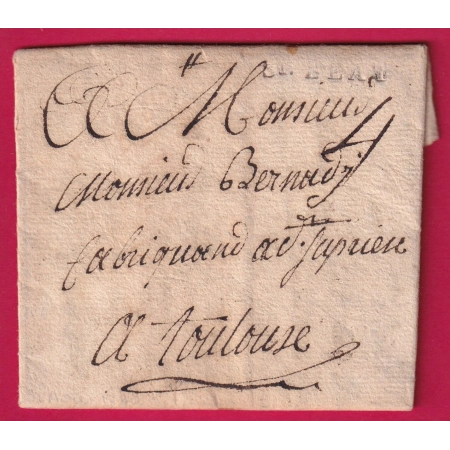 ST. BEAT
A Monsieur
Monsieur Bernady
fabriquand a St. Syprien
a toulouse